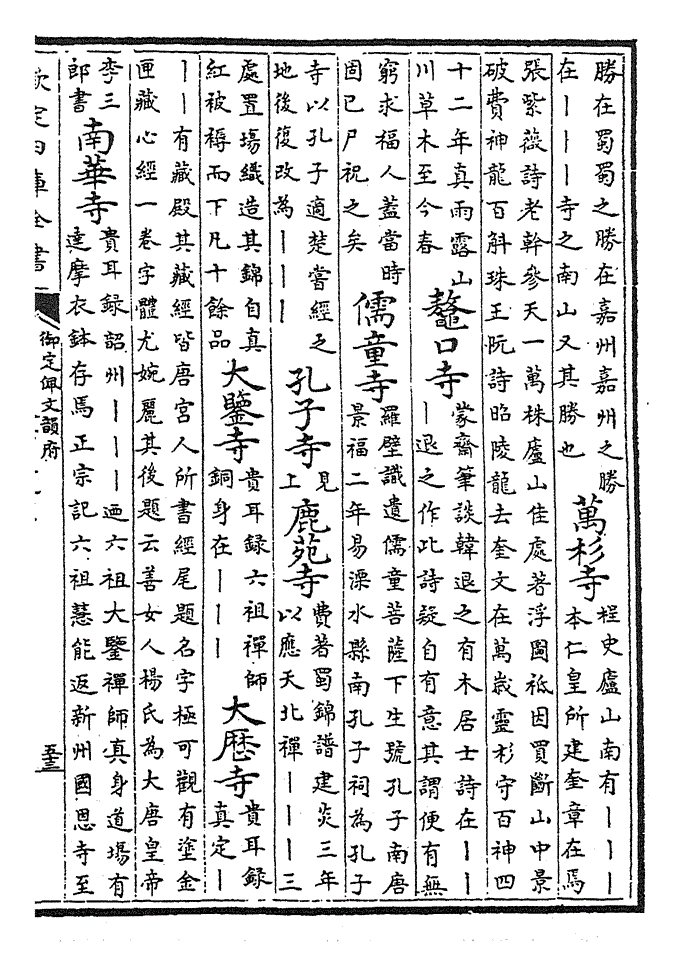 勝在蜀蜀之勝在嘉州嘉州之勝
在丨丨丨寺之南山又其勝也
萬杉寺
桯史廬山南有丨丨丨
本仁皇所建奎章在焉
張紫薇詩老幹參天一萬株廬山佳處著浮圖祗因買斷山中景
破費神龍百斛珠王阮詩昭陵龍去奎文在萬歲靈杉守百神四
十二年真雨露山
川草木至今春
鼇口寺
蒙齋筆談韓退之有木居士詩在丨丨
丨退之作此詩疑自有意其謂便有無
窮求福人蓋當時
固已尸祝之矣
儒童寺
羅壁識遺儒童菩薩下生號孔子南唐
景福二年易溧水縣南孔子祠為孔子
寺以孔子適楚嘗經之
地後復改為丨丨丨
孔子寺
見
上
鹿苑寺
費著蜀錦譜建炎三年
以應天北禪丨丨丨三
處置場織造其錦自真
紅被褥而下凡十餘品
大鑒寺
貴耳録六祖禪師
銅身在丨丨丨
大厯寺
貴耳録
真定丨
丨丨有藏殿其藏經皆唐宫人所書經尾題名字極可觀有塗金
匣藏心經一卷字體尤婉麗其後題云善女人楊氏為大唐皇帝
李三
郎書
南華寺
貴耳録韶州丨丨丨廼六祖大鑒禪師真身道場有
達摩衣鉢存焉正宗記六祖慧能返新州國恩寺至
欽定四庫全書
御定佩文韻府
五三